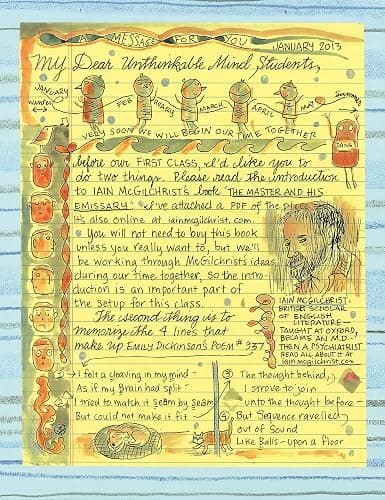 A MESSAGE FOR YOU
JANUARY 2013
My Dear Unthinkable Mind Students,
JANUARY
WINTER
FEB
RUARY
MARCH
APRIL
MAY
SUMMER
VERY SOON WE WILL BEGIN OUR TIME TOGETHER
before our FIRST CLASS, I'd like you to
do two things. Please read the introduction
to IAIN McGILCHRIST's book "THE MASTER AND HIS
EMISSARY". I've attached a PDF of the piece
It's also online at iainmcgilchrist.com.
You will not need to buy this book
unless you really want to, but we'll
be working through McGilchrist's ideas
during our time together, so the intro-
duction is an important part of
the setup for this class.
The second thing is to
memorize the 4 lines that
make up EMILY DICKINSON'S POEM # 937
IAIN McGILCHRIST,
BRITISH SCHOLAR
OF ENGLISH
LITERATURE -
TAUGHT AT OXFORD,
BECAME AN M.D -
THEN A PSYCHIATRIST
READ ALL ABOUT IT AT
iainmcgilchrist.com
① I felt a cleaving in my mind -
As if my Brain had split -
② I tried to match it Seam by Seam
But could not make it fit -
③ The thought behind,
I strove to join
unto the thought before -
④ But Sequence ravelled
out of Sound
Like Balls - upon a floor